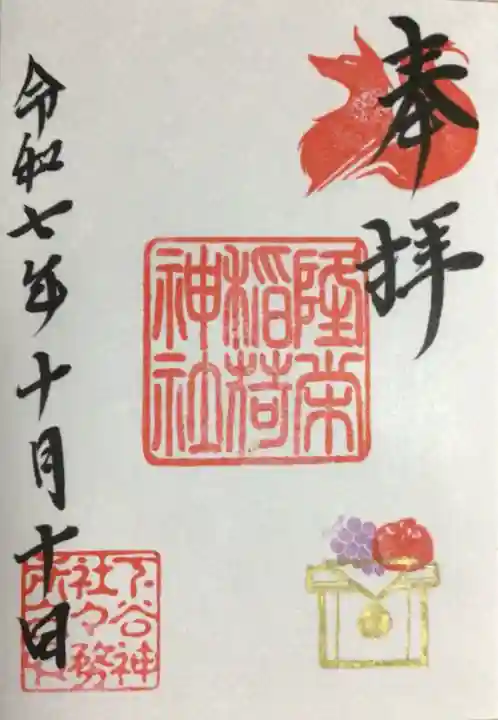 奉拝
隆栄
稲荷
神社
令和七年十月十日
下谷神
社々務